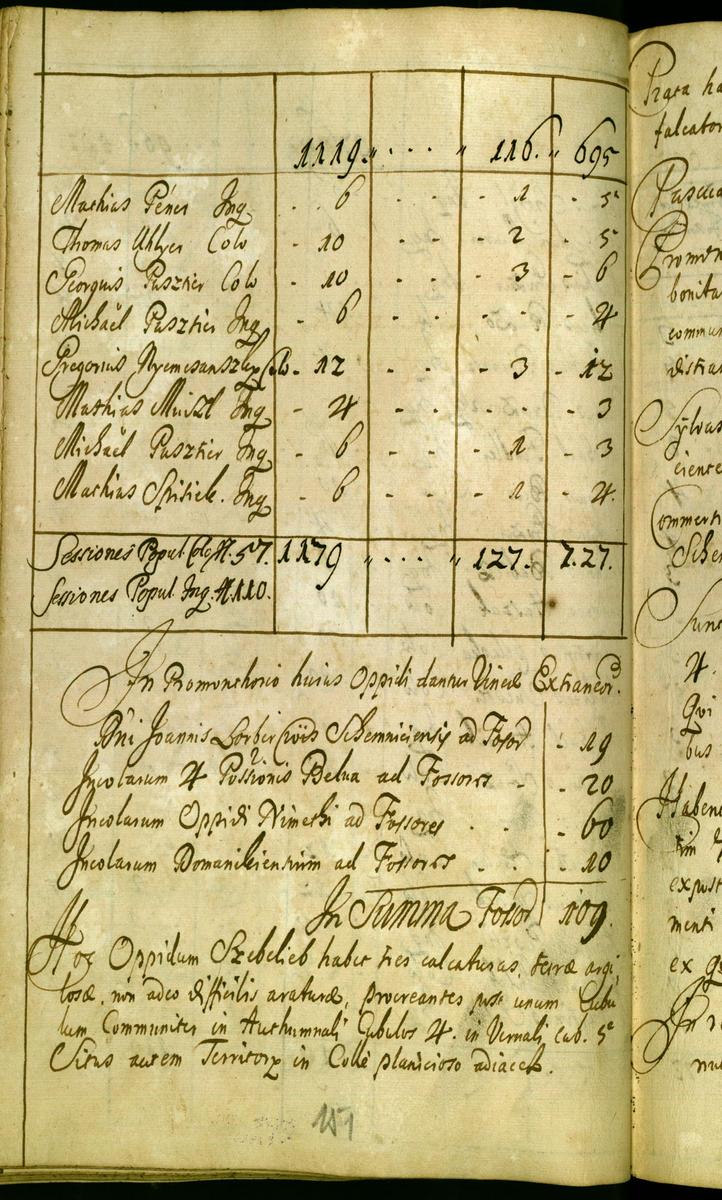 1119. „ . . . „ 116. „ 695
Mathias Péner Inq - 6 - - 1 - 5
Thomas Uhlyer Colo - 10 - - 2 - 5
Georgius Pasztier Colo - 10 - - 3 - 6
Michaël Pasztier Inq - 6 - - - - 4
Gregorius Nyemcsanszky Colo - 12 - - 3 - 12
Mathias Muizl Inq - 4 - - - - 3
Michaël Pasztier Inq - 6 - - 1 - 3
Mathias Inq - 6 - - 1 - 4
Sessiones Popul. Colo. N. 57. 1179 „ . . . „ 127. 727.
Sessiones Popul. Inq. N. 110.
In Promonthorio huius Oppidi dantur Vineæ Extraneor.
Dni Joannis Lorber Civis Schemniciensis ad Fosor - 19
Incolarum 4 Possionis Belua ad Fossores - - 20
Incolarum Oppidi Nimethi ad Fossores - - 60
Incolarum Domanikiensium ad Fossores - - 10
In Summa Fosor 109.
Hoc Oppidum Szebelieb habet tres calcaturas, terræ argi,
losæ, non adeo difficilis araturæ, procreantes post unum Cubu
lum Communiter in Authumnali Cubulos 4. in Vernali cub. 5
Situs autem Territory in Colle planicioso adiacet.
151
Prata ha
falcator
Pascua
Promon
bonita
commun
distra
Sylvas
ciente
Commerti
Sche
Sunt
4.
Qui
bus
Habent
tim
expost
menti
ex
In